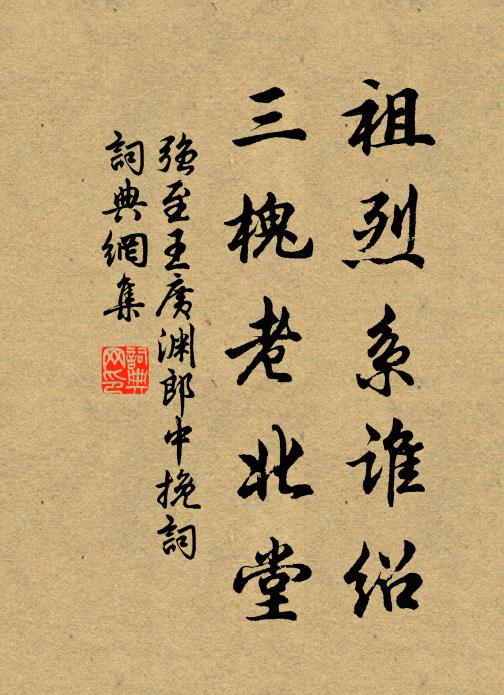 祖烈系谁绍
三槐老北堂
强至王廣渊郎中挽詞
詞典網集
詞典
网印